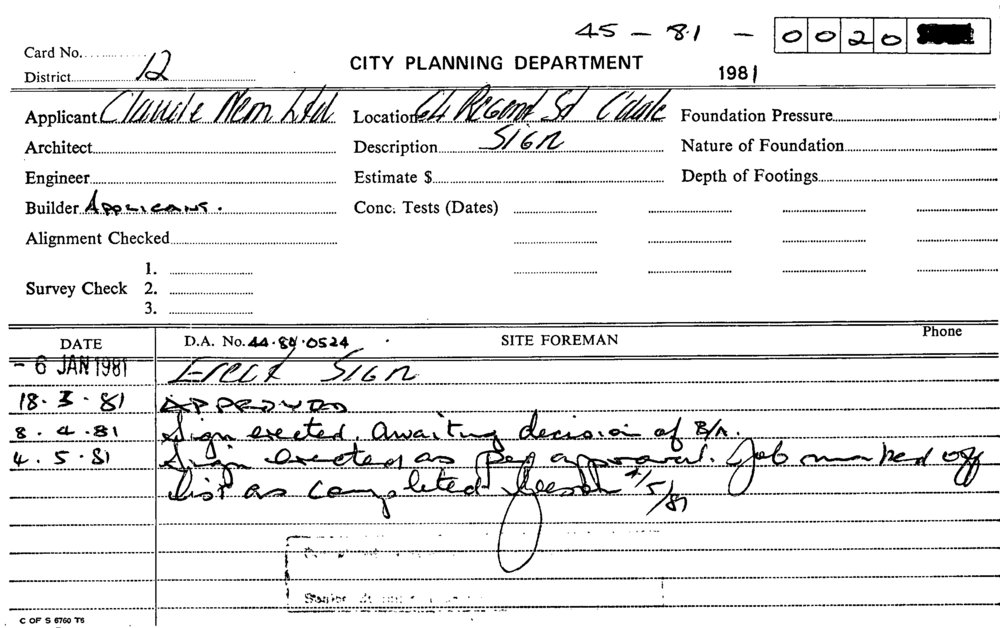 45 - 81 - 0020
Card No.
District 12
CITY PLANNING DEPARTMENT
1981
Applicant Claude Neon Ltd Location 64 Regent St C'dale Foundation Pressure
Architect Description SIGN Nature of Foundation
Engineer Estimate $ Depth of Footings
Builder APPLICANT. Conc. Tests (Dates)
Alignment Checked
1.
Survey Check 2.
3.
DATE D.A. No. 44.80.0524 SITE FOREMAN Phone
- 6 JAN 1981 Erect Sign
18.3.81 APPROVED
8.4.81 Sign erected. Awaiting decision of B/A.
4.5.81 Sign erected as per approval. Job marked off
list as completed 4/5/81
C OF S 6760 T6